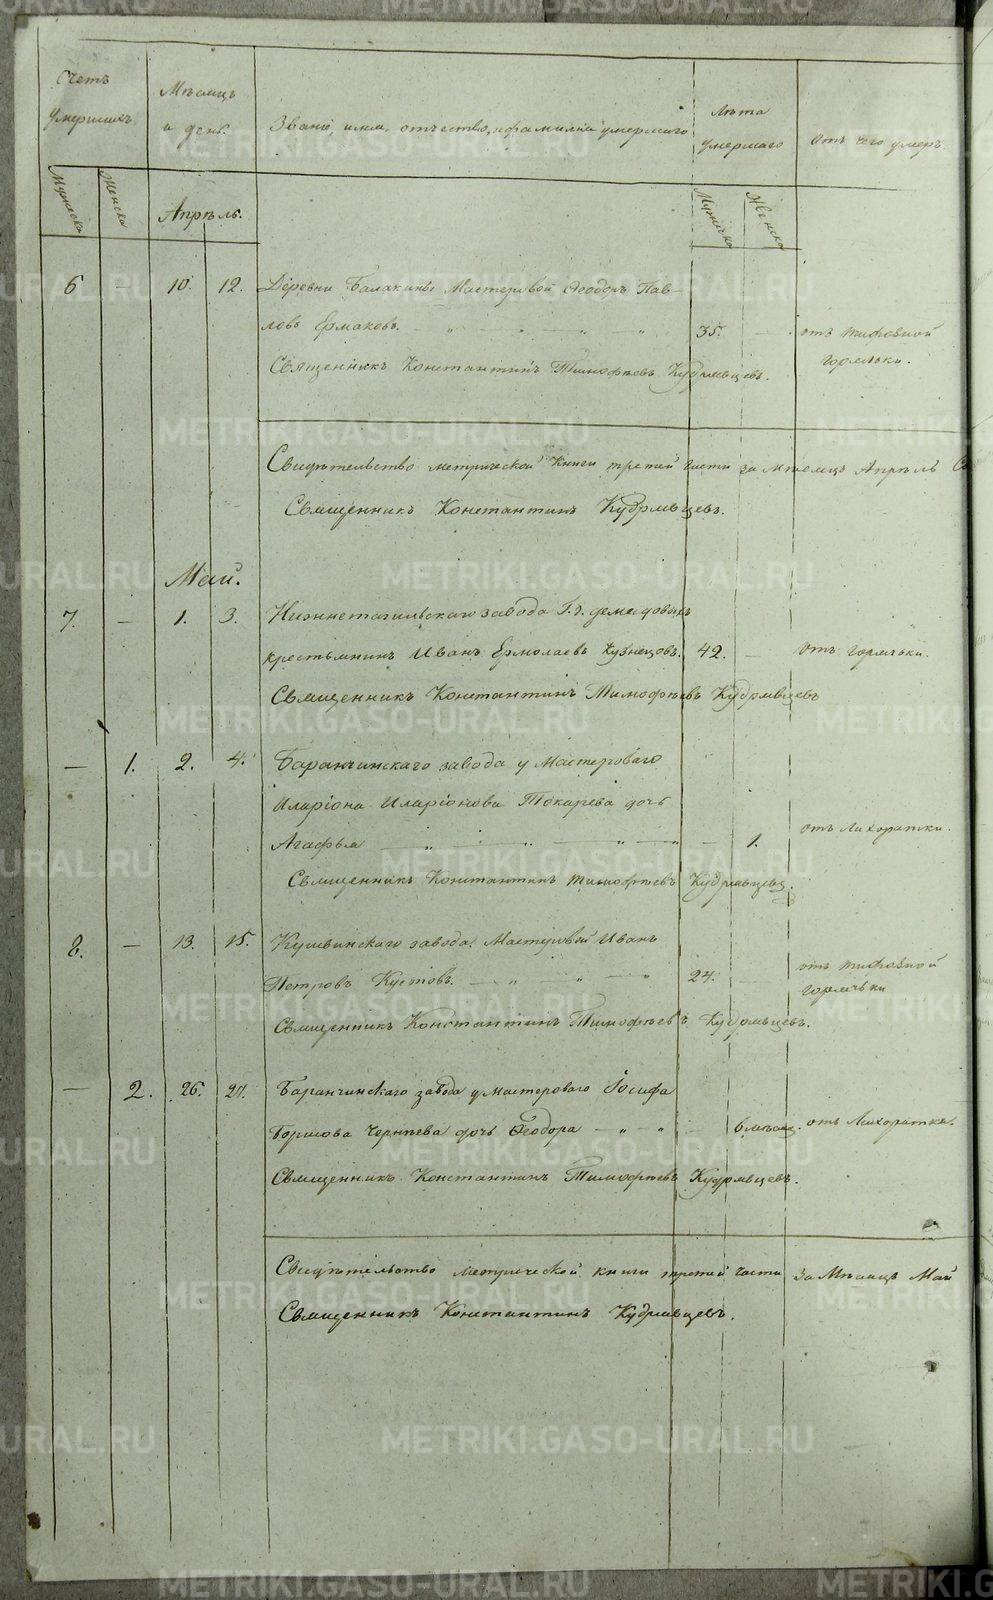 Счетъ умершихъ.
Мѣсяцъ и день.
Званіе, имя, отчество, и фамилія умершаго
Лѣта умершаго
Отъ чего умеръ.
Мужеска
Женска
Апрѣль.
Мужеска
Женска
6 — 10. 12. Деревни Балакиной Мастеровой Ѳеодоръ Пав-
ловъ Ермаковъ. — „ — „ — „ — „ 35. — отъ тифозной
горячьки.
Священникъ Константинъ Тимофѣевъ Кудрявцевъ.
Свидѣтельство метрической книги третей части за мѣсяцъ Апрѣль
Священникъ Константинъ Кудрявцевъ.
Май.
7. — 1. 3. Нижнетагильскаго завода Г. г. демидовыхъ
крестьянинъ Иванъ Ермолаевъ Кузнецовъ. 42. — Отъ горячьки.
Священникъ Константинъ Тимофѣевъ Кудрявцевъ
— 1. 2. 4. Баранчинскаго завода у Мастероваго
Иларіона Иларіонова Токарева дочь
Агафья — „ — „ — „ — „ — 1. отъ Лихоратки.
Священникъ Константинъ Тимофѣевъ Кудрявцевъ.
8. — 13. 15. Кушвинскаго завода Мастеровой Иванъ
Петровъ Кустовъ. — „ — „ — „ 24. — отъ тифозной
горячьки
Священникъ Константинъ Тимофѣевъ Кудрявцевъ.
— 2. 26. 27. Баранчинскаго завода у мастероваго Іосифа
Борисова дочь Ѳеодора — „ — „ — 6 мѣсяц. отъ Лихоратки.
Священникъ Константинъ Тимофѣевъ Кудрявцевъ.
Свидѣтельство метрической книги третей части за Мѣсяцъ Май
Священникъ Константинъ Кудрявцевъ.
METRIKI.GASO-URAL.RU